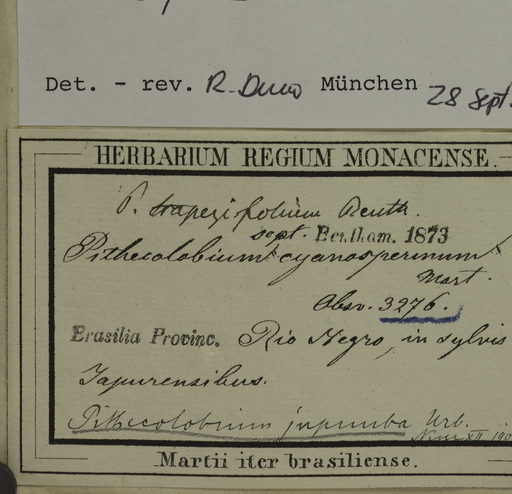 Det. - rev. R. Duno München 28 sept.
HERBARIUM REGIUM MONACENSE.
P. trapezifolium Benth.
sept. Bentham. 1873
Pithecolobium cyanospermum
Mart.
Obsv. 3276.
Brasilia Provinc. Rio Negro, in sylvis
Japurensibus.
Pithecolobium jupunba Urb.
XII 190
Martii iter brasiliense.